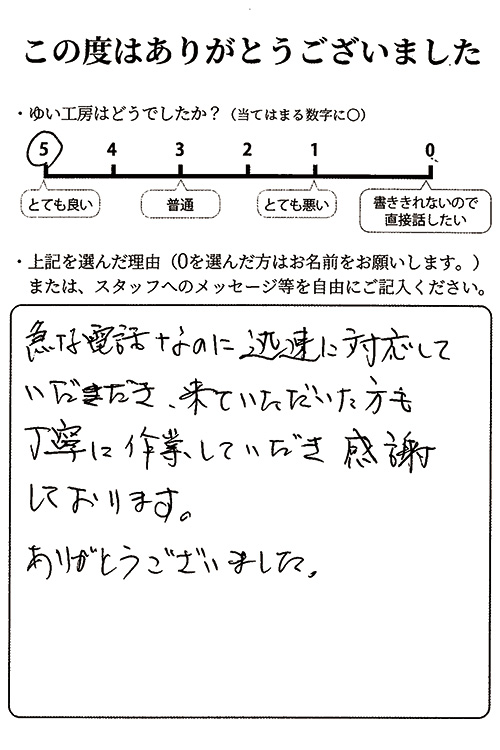 この度はありがとうございました
・ゆい工房はどうでしたか？（当てはまる数字に〇）
5 4 3 2 1 0
とても良い 普通 とても悪い 書ききれないので
直接話したい
・上記を選んだ理由（0を選んだ方はお名前をお願いします。）
または、スタッフへのメッセージ等を自由にご記入ください。
急な電話なのに迅速に対応して
いだきだき、来ていただいた方も
丁寧に作業していだき感謝
しております。
ありがとうございました。